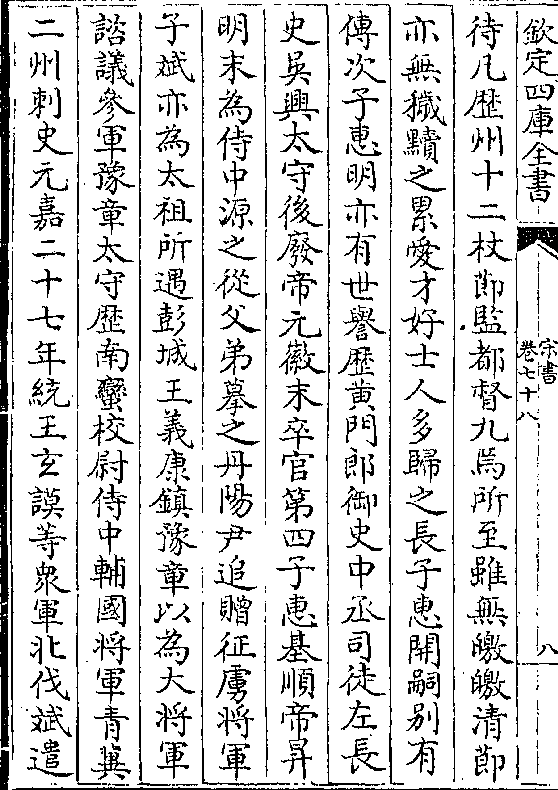 欽定四庫全書
宋書
卷七十八
八
待凡歴州十二杖節監都督九焉所至雖無皦皦清節
亦無穢黷之累愛才好士人多歸之長子惠開嗣别有
傳次子惠明亦有世譽歴黄門郎御史中丞司徒左長
史吳興太守後廢帝元徽末卒官第四子惠基順帝昇
明末為侍中源之從父弟摹之丹陽尹追贈征虜將軍
子斌亦為太祖所遇彭城王義康鎮豫章以為大將軍
諮議參軍豫章太守歴南蠻校尉侍中輔國將軍青冀
二州刺史元嘉二十七年統王玄謨等衆軍北伐斌遣